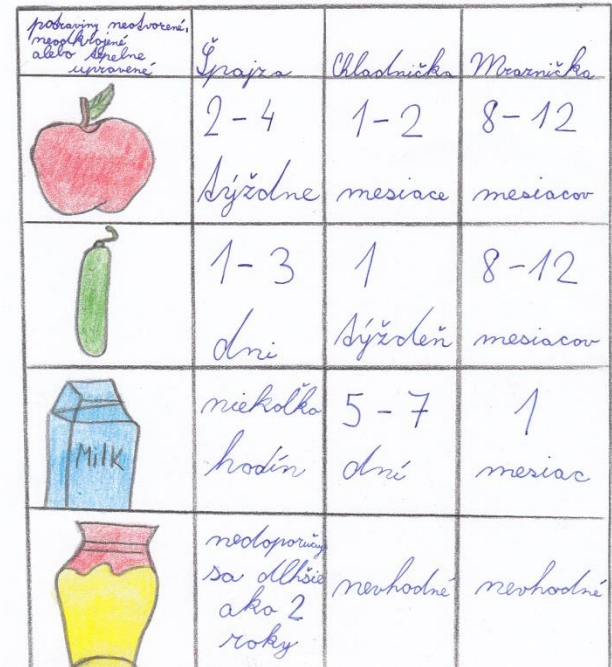 potraviny neotvorené,
neodkrojené
alebo tepelne
upravené
Špajza
Chladnička
Mraznička
2-4
týždne
1-2
mesiace
8-12
mesiacov
1-3
dni
1
týždeň
8-12
mesiacov
Milk
niekoľko
hodín
5-7
dní
1
mesiac
nedoporučuje
sa dlhšie
ako 2
roky
nevhodné
nevhodné